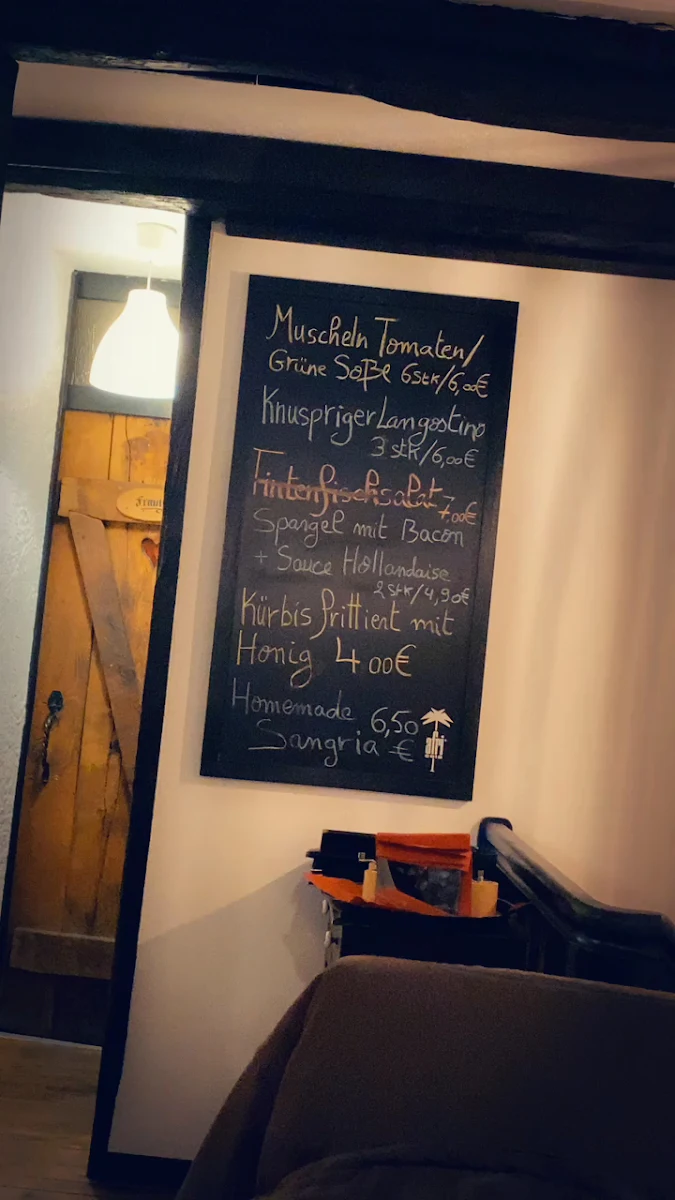 Muscheln Tomaten/
Grüne Soße 6Stk/6,00€
Knuspriger Langostino
3 Stk/6,00€
Tintenfischsalat 7,00€
Spargel mit Bacon
+ Sauce Hollandaise
2 Stk/4,90€
Kürbis frittiert mit
Honig 4 00€
Homemade 6,50
Sangria €
afri